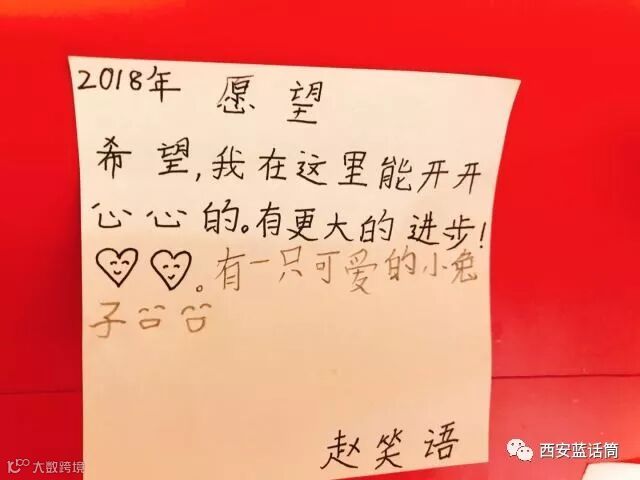 2018年 愿望
希望,我在这里能开开
心心的。有更大的进步!
。有一只可爱的小兔
子
赵笑语
西安蓝话筒
大数跨境